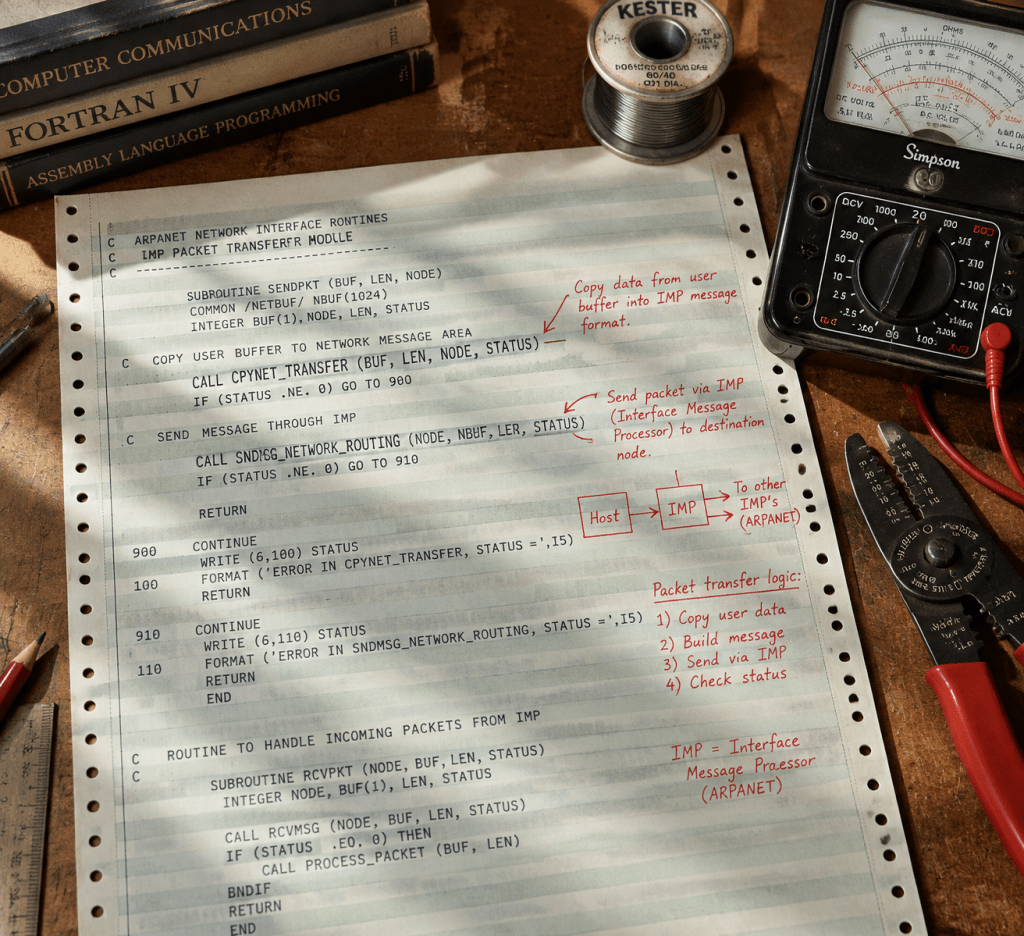 COMPUTER COMMUNICATIONS
FORTRAN IV
ASSEMBLY LANGUAGE PROGRAMMING
KESTER
60/40
Simpson
OHMS
C ARPANET NETWORK INTERFACE ROUTINES
C IMP PACKET TRANSFERFR MODLLE
C ------------------------------
SUBROUTINE SENDPKT (BUF, LEN, NODE)
COMMON /NETBUF/ NBUF(1024)
INTEGER BUF(1), NODE, LEN, STATUS
C COPY USER BUFFER TO NETWORK MESSAGE AREA
CALL CPYNET_TRANSFER (BUF, LEN, NODE, STATUS)
IF (STATUS .NE. 0) GO TO 900
Copy data from user
buffer into IMP message
format.
C SEND MESSAGE THROUGH IMP
CALL SNDMSG_NETWORK_ROUTING (NODE, NBUF, LER, STATUS)
IF (STATUS .NE. 0) GO TO 910
Send packet via IMP
(Interface Message
Processor) to destination
node.
RETURN
Host
IMP
To other
IMP's
(ARPANET)
900 CONTINUE
WRITE (6,100) STATUS
100 FORMAT ('ERROR IN CPYNET_TRANSFER, STATUS =',I5)
RETURN
910 CONTINUE
WRITE (6,110) STATUS
110 FORMAT ('ERROR IN SNDMSG_NETWORK_ROUTING, STATUS =',I5)
RETURN
END
Packet transfer logic:
1) Copy user data
2) Build message
3) Send via IMP
4) Check status
C ROUTINE TO HANDLE INCOMING PACKETS FROM IMP
C
SUBROUTINE RCVPKT (NODE, BUF, LEN, STATUS)
INTEGER NODE, BUF(1), LEN, STATUS
CALL RCVMSG (NODE, BUF, LEN, STATUS)
IF (STATUS .EQ. 0) THEN
CALL PROCESS_PACKET (BUF, LEN)
BNDIF
RETURN
END
IMP = Interface
Message Processor
(ARPANET)